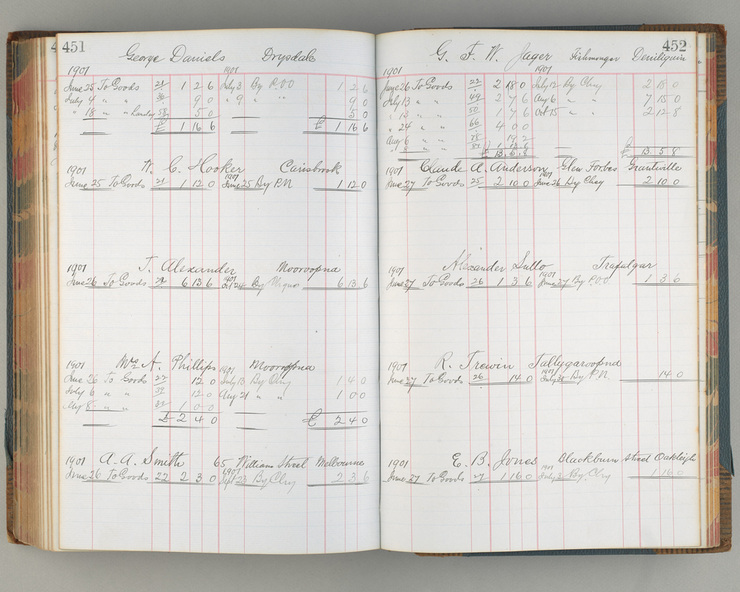 451
George Daniels Drysdale
1901 1901
June 25 To Goods 21 1 2 6 July 3 By P.O.O 1 2 6
July 4 " " 9 0 " 9 " " 9 0
" 18 " " 5 0 5 0
£ 1 16 6 £ 1 16 6
1901 W. C. Hooker Carisbrook
June 25 To Goods 21 1 12 0 1901 June 25 By P.N 1 12 0
1901 J. Alexander Mooroopna
June 26 To Goods 6 13 6 1901 By 6 13 6
1901 Mrs A. Phillips 1901 Mooroopna
June 26 To Goods 22 12 0 July 13 By Clry 1 4 0
July 6 " " 12 0 Aug 21 " " 1 0 0
Aug 8 " " 1 0 0
£ 2 4 0 £ 2 4 0
1901 A. A. Smith 65 William Street Melbourne
June 26 To Goods 22 2 3 0 1901 Sept 23 By Clry 2 3 6
452
G. F. W. Jager Fishmonger Deniliquin
1901 1901
June 26 To Goods 22 2 18 0 July 12 By Clry 2 18 0
July 13 " " 49 2 7 6 Aug 6 " " 7 15 0
" 13 " " 50 1 7 6 Oct 15 " " 2 12 8
" 24 " " 66 4 0 0
Aug 6 " " 19 2
£ 13 5 8
1901 Claude A. Anderson Glen Forbes Grantville
June 27 To Goods 25 2 10 0 1901 June 26 By Clry 2 10 0
1901 Alexander Sutto Trafalgar
June 27 To Goods 26 1 3 6 1901 June 27 By P.O.O 1 3 6
1901 R. Trewin Tallygaroopna
June 27 To Goods 26 14 0 1901 July 28 By P.N. 14 0
1901 E. B. Jones Blackburn Street Oakleigh
June 27 To Goods 27 1 16 0 1901 July 2 By Clry 1 16 0